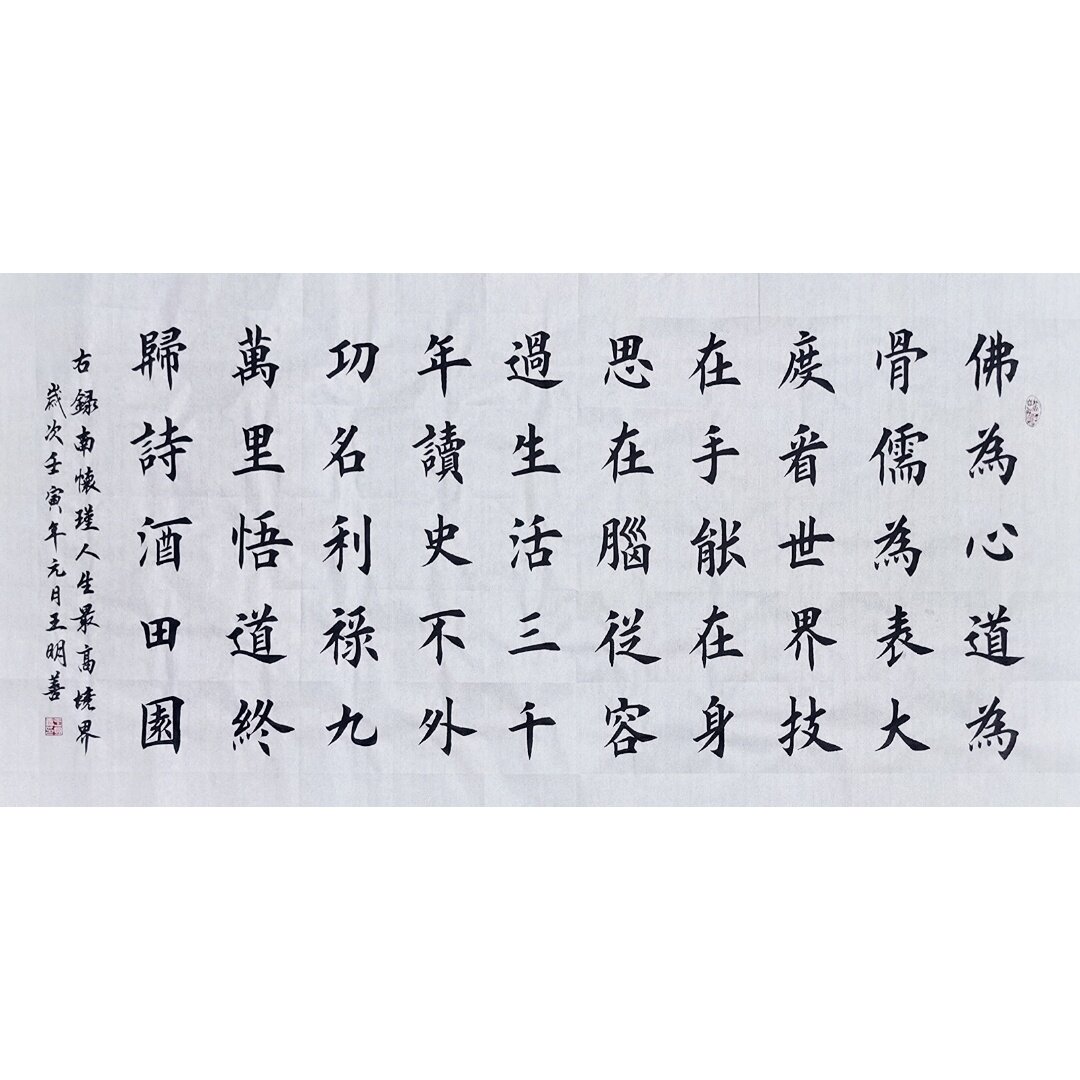 佛為心道為
骨儒為表大
度看世界技
在手能在身
思在腦從容
過生活三千
年讀史不外
功名利祿九
萬里悟道終
歸詩酒田園
右錄南懷瑾人生最高境界
歲次壬寅年元月王明善